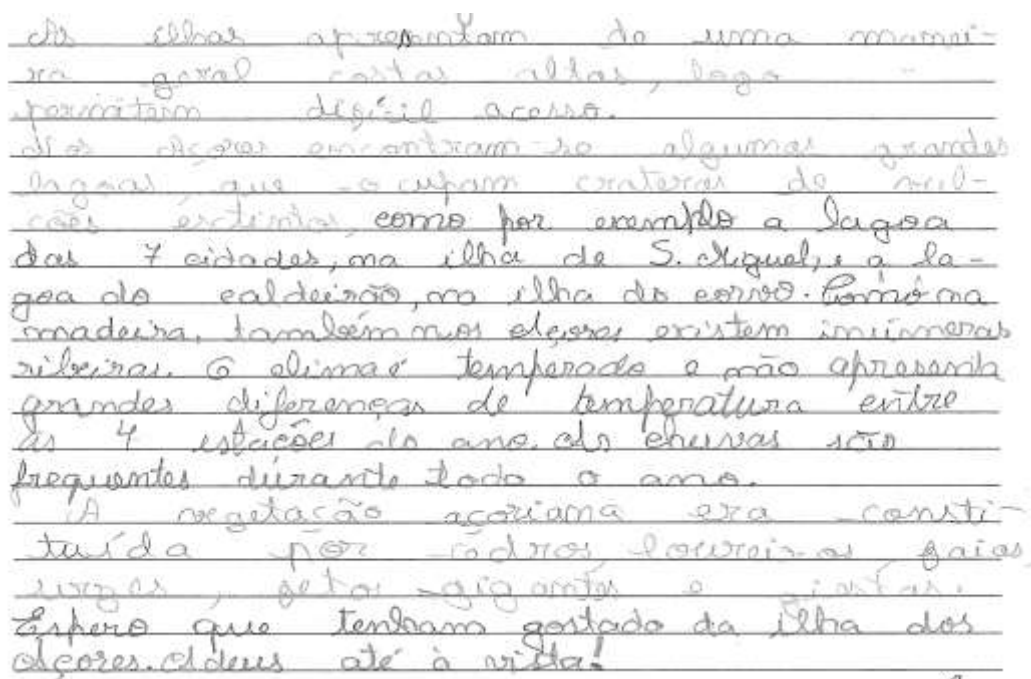 As ilhas apresentam de uma manei-
ra geral costas altas, logo -
permitem difícil acesso.
Nos Açores encontram-se algumas grandes
lagoas, que ocupam crateras de vul-
cões extintos, como por exemplo a lagoa
das 7 cidades, na ilha de S. Miguel, e a la-
goa do caldeirão, na ilha do corvo. Como na
madeira, também nos Açores existem inúmeras
ribeiras. O clima é temperado e não apresenta
grandes diferenças de temperatura entre
as 4 estações do ano. As chuvas são
frequentes durante todo o ano.
A vegetação açoriana era consti-
tuída por cedros, loureiros faias
urzes, fetos gigantes e giestas.
Espero que tenham gostado da ilha dos
Açores. Adeus até à vista!